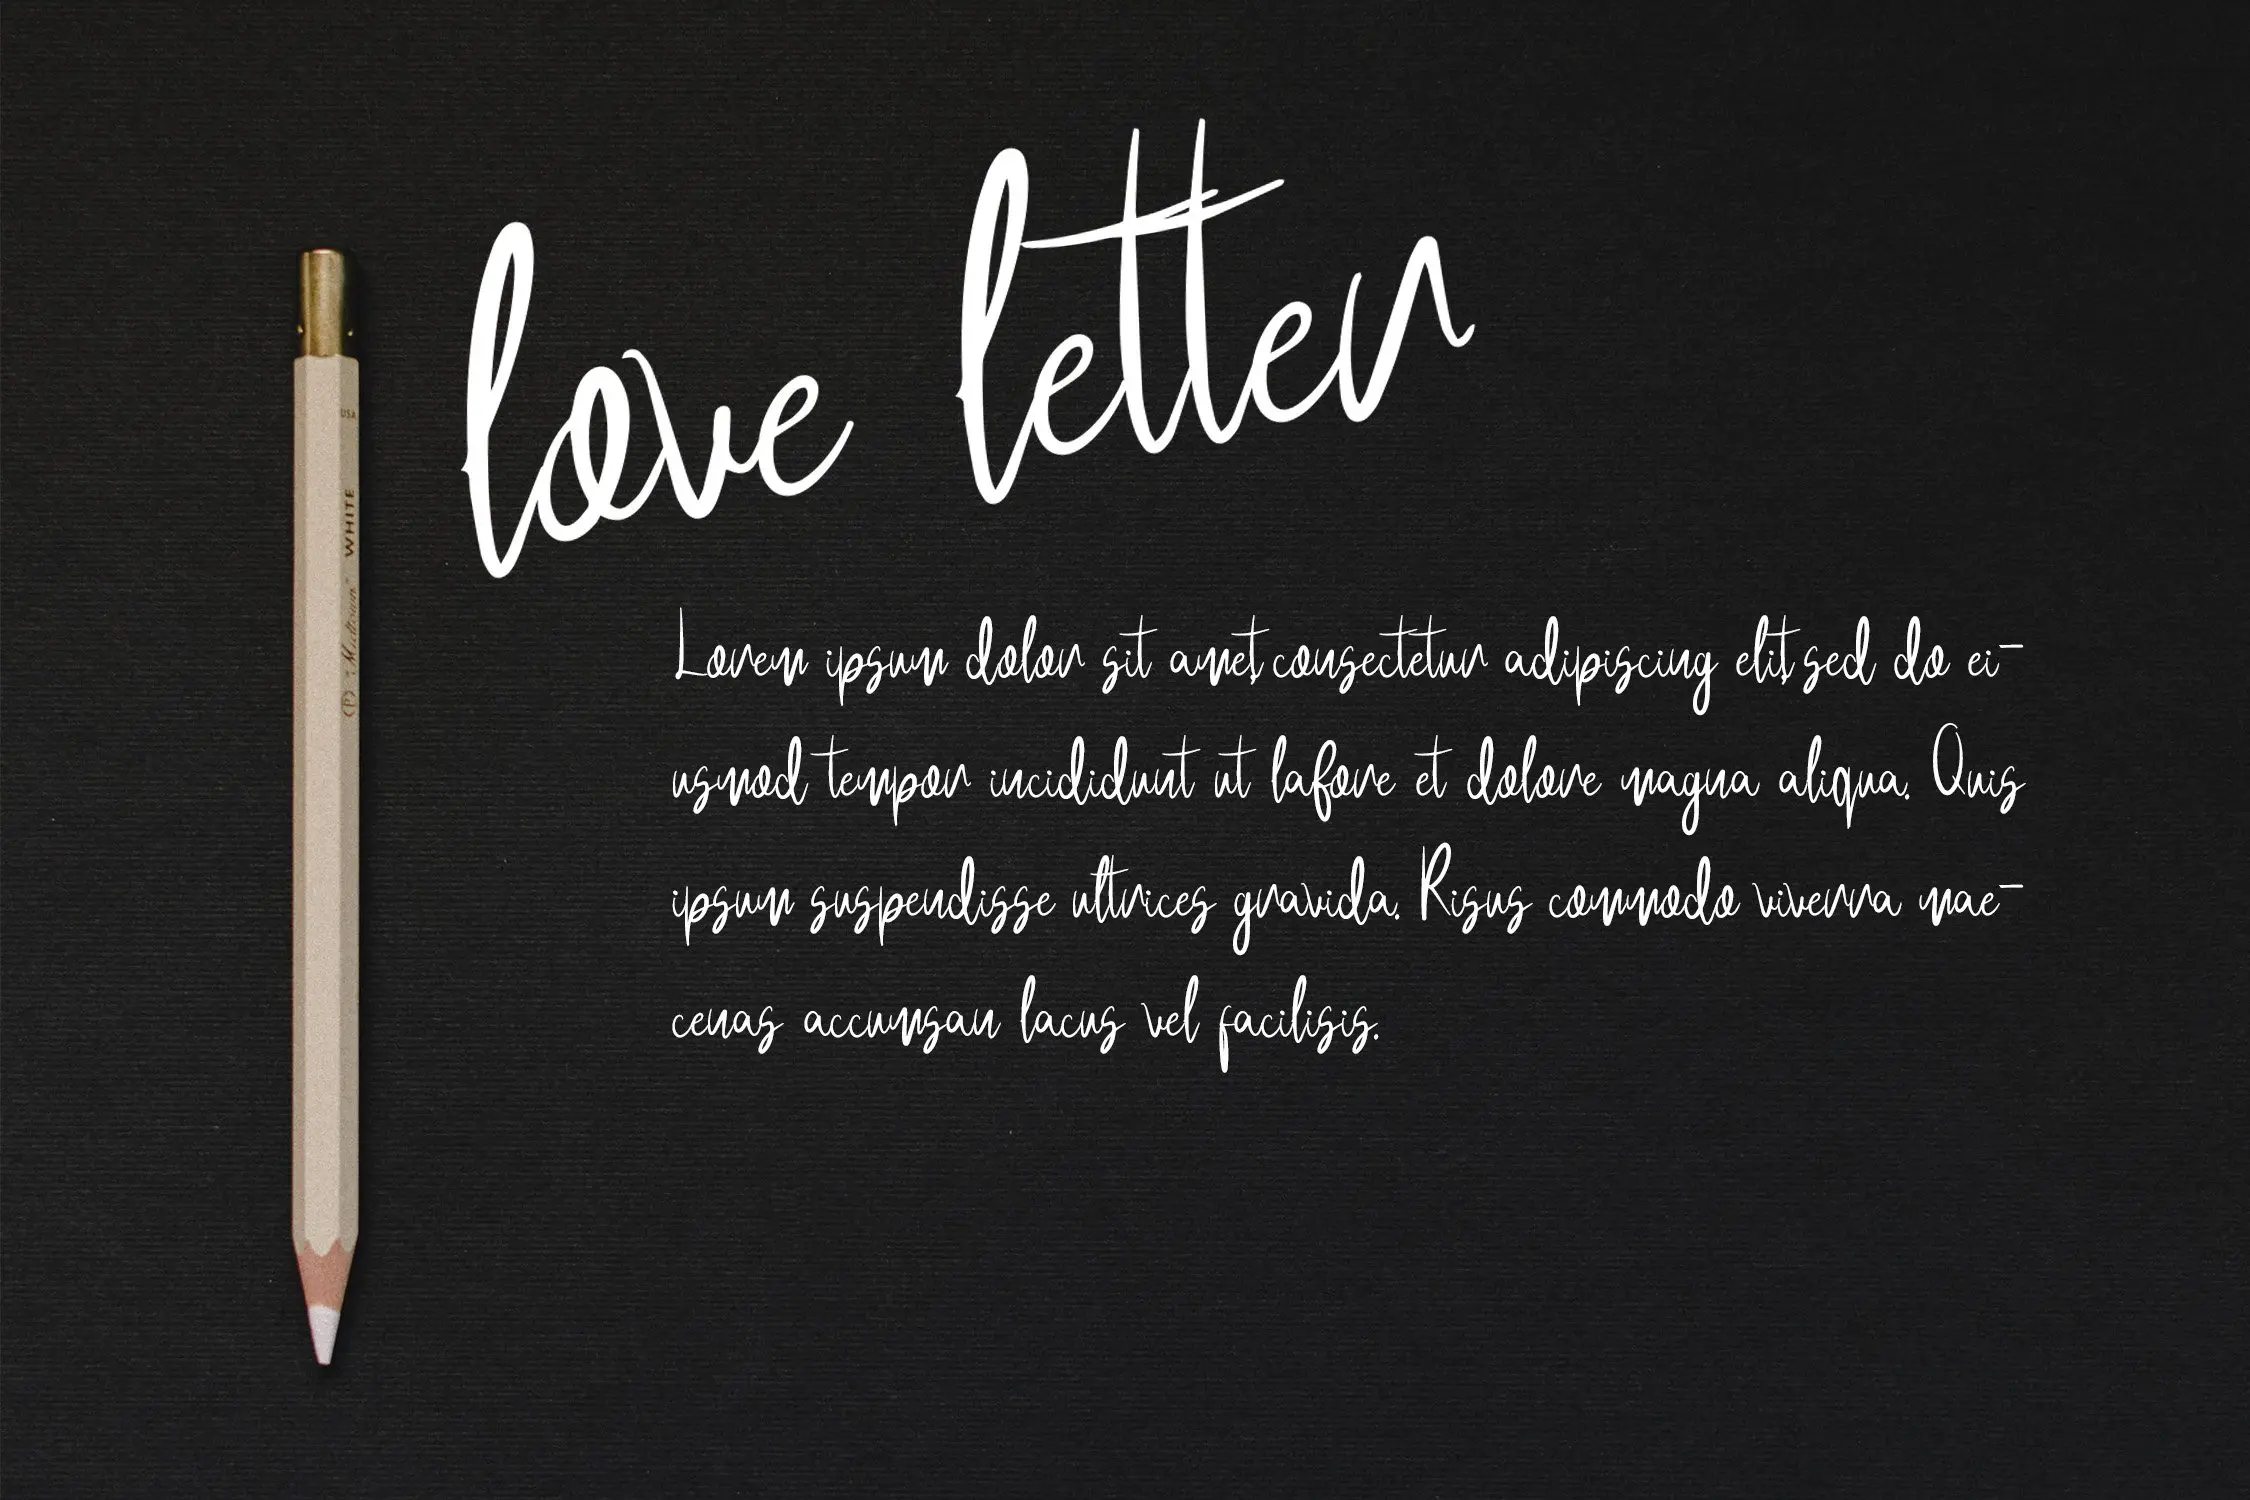 love letter
Lorem ipsum dolor sit amet, consectetur adipiscing elit, sed do ei-
usmod tempor incididunt ut labore et dolore magna aliqua. Quis
ipsum suspendisse ultrices gravida. Risus commodo viverra mae-
cenas accumsan lacus vel facilisis.
USA
WHITE